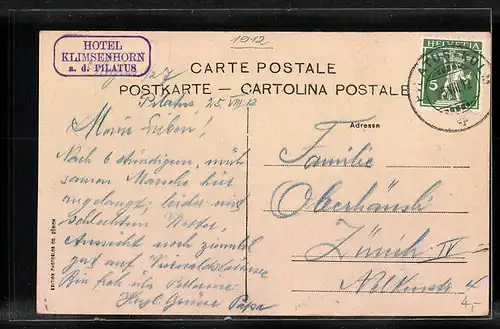 1912
HOTEL
KLIMSENHORN
a. d. PILATUS
HELVETIA
5
CARTE POSTALE
POSTKARTE — CARTOLINA POSTALE
Pilatus, 25. VIII. 12
Adresse
Meine Lieben!
Nach 6 stündigem, müh
samen Marsche hier
angelangt; leider und
schlechtem Wetter,
Aussicht noch ziemlich
gut auf Vierwaldstättersee
Bin früh
Herzl. Grüsse Papa
Familie
Oberhänsli
Zürich IV
4
4,-
EDITION PHOTOGLOB CO. ZÜRICH